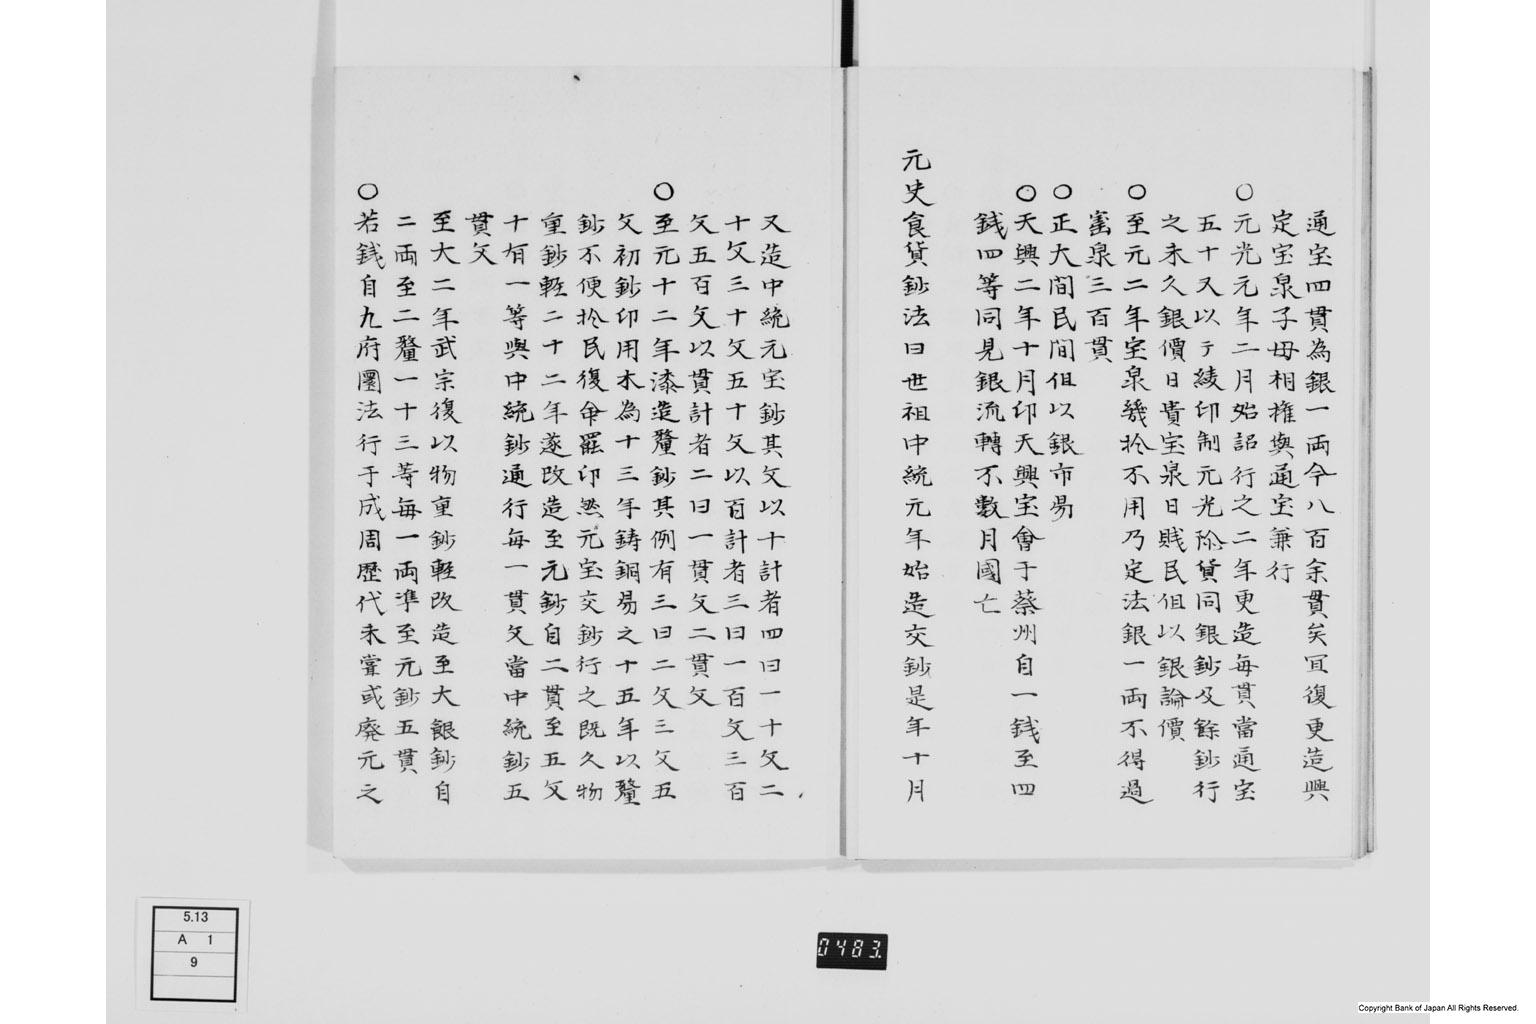 通宝四貫為銀一両今八百余貫矣冝復更造興
定宝泉子母相権與通宝兼行
○元光元年二月始詔行之二年更造每貫當通宝
五十又以亍綾印制元光阾貨同銀鈔及餘鈔行
之未久銀價日貴宝泉日賎民但以銀論價
○至元二年宝泉幾扵不用乃定法銀一両不得過
宝泉三百貫
○正大間民間但以銀市易
○天興二年十月印天興宝會于蔡州自一銭至四
銭四等同見銀流轉不數月國亡
元史食貨鈔法曰世祖中統元年始造交鈔是年十月
又造中統元宝鈔其文以十計者四曰一十文二
十文三十文五十文以百計者三曰一百文三百
文五百文以貫計者二曰一貫文二貫文
○至元十二年漆造釐鈔其例有三曰二文三文五
文初鈔印用木為十三年鋳銅易之十五年以釐
鈔不便扵民復命罷印然元宝交鈔行之既久物
重鈔軽二十二年遂改造至元鈔自二貫至五文
十有一等與中統鈔通行每一貫文當中統鈔五
貫文
至大二年武宗復以物重鈔軽改造至大銀鈔自
二両至二釐一十三等每一両準至元鈔五貫
○若銭自九府圜法行于成周歴代未甞或廃元之
5.13
A 1
9
0483.
Copyright Bank of Japan All Rights Reserved.